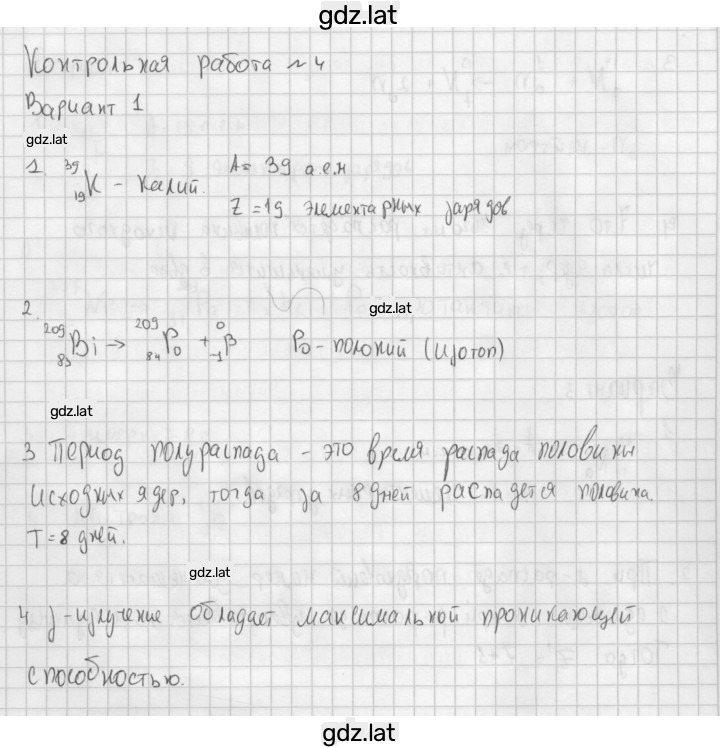 gdz.lat
Контрольная работа №4
Вариант 1
gdz.lat
1. ³⁹₁₉K - калий. A = 39 а.е.м
Z = 19 элементарных зарядов
gdz.lat
2. ²⁰⁹₈₃Bi → ²⁰⁹₈₄Po + ⁰₋₁β Po - полоний (изотоп)
gdz.lat
3 Период полураспада - это время распада половины
исходных ядер, тогда за 8 дней распадется половина.
T = 8 дней.
gdz.lat
4. γ-излучение обладает максимальной проникающей
способностью.
gdz.lat